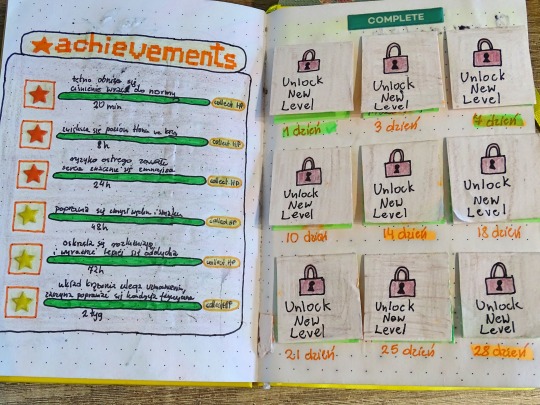 achievements
tętno obniża się,
ciśnienie wraca do normy
collect HP
20 min
zwiększa się poziom tlenu we krwi
collect HP
8h
ryzyko ostrego zawału
serca znacznie się zmniejsza
collect HP
24h
poprawia się zmysł węchu i smaku
collect HP
48h
oskrzela się rozluźniają
i wyraźnie lepiej się oddycha
collect HP
72h
układ krążenia ulega wzmocnieniu,
zaczyna poprawiać się kondycja fizyczna
collect HP
2 tyg
COMPLETE
Unlock
New
Level
1 dzień
Unlock
New
Level
3 dzień
Unlock
New
Level
7 dzień
Unlock
New
Level
10 dzień
Unlock
New
Level
14 dzień
Unlock
New
Level
18 dzień
Unlock
New
Level
21 dzień
Unlock
New
Level
25 dzień
Unlock
New
Level
28 dzień